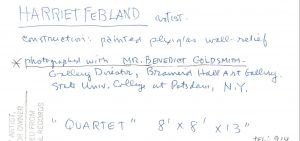 HARRIET FEBLAND artist.
construction: painted plexiglas wall-relief
* photographed with MR. BENEDICT GOLDSMITH
Gallery Director, Brainerd Hall Art Gallery.
State Univ. College at Potsdam, N.Y.
"QUARTET" 8' x 8' x 13"
ARTIST,
OR OWNER
ED FROM
L RECORDS
TEL: 914